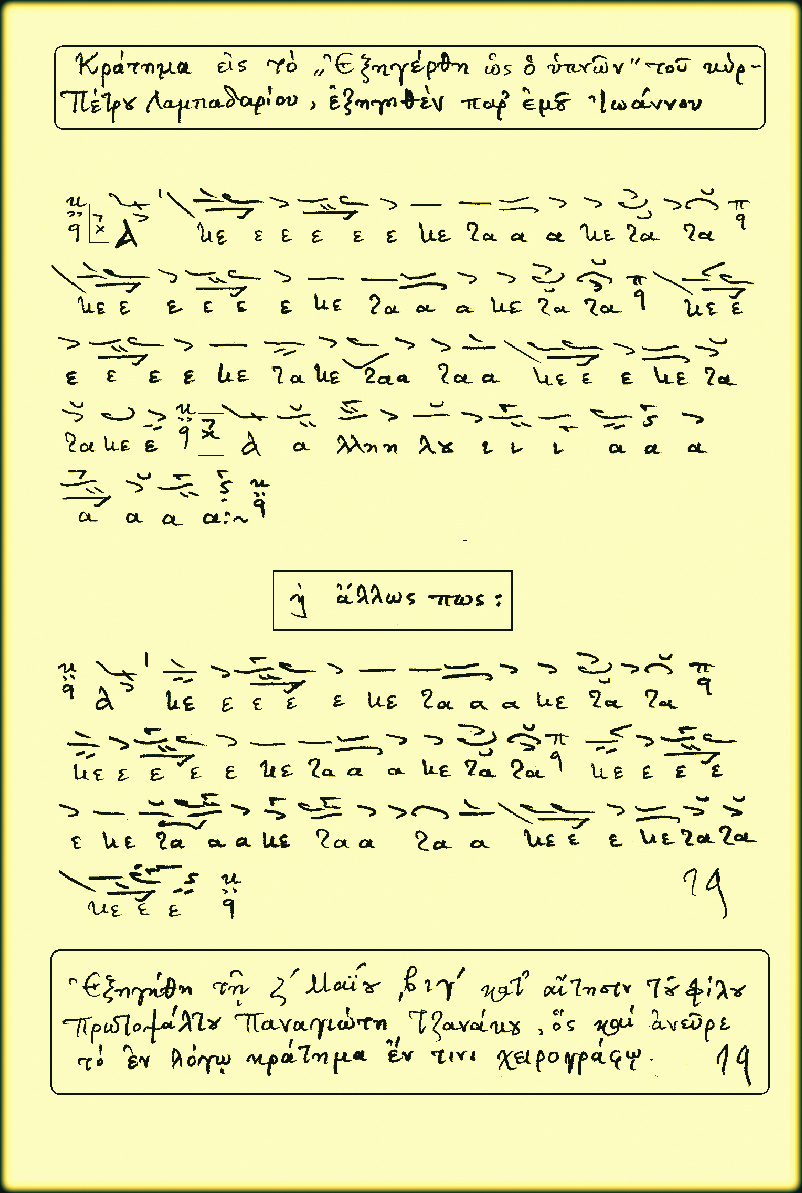 Κράτημα εἰς τὸ „Ἐξηγέρθη ὡς ὁ ὑπνῶν” τοῦ κὺρ-
Πέτρȣ Λαμπαδαρίου, ἐξηγηθὲν παρ' ἐμοῦ Ἰωάννου
κε ε ε ε ε ε κε τα α α κε τα τα
κε ε ε ε ε ε κε τα α α κε τα τα κε ε
ε ε ε ε κε τα κε τ̓αα τα α κε ε ε κε τα
τα κε ε λ α λληη λȣ ι ι ι α α α
α α α α:~
ἢ ἄλλως πως:
λ κε ε ε ε ε κε τα α α κε τα τα
κε ε ε ε ε κε τα α α κε τα τα κε ε ε ε
ε κε τα α α κε τα α τα α κε ε ε κε τα τα
κε ε ε
Ἐξηγήθη τῇ ζ´ Μαΐȣ ͵βιγ´ κατ' αἴτησιν τȣ͂ φίλȣ
Πρωτοψάλτȣ Παναγιώτη Τζανάκȣ, ὃς καὶ ἀνεῦρε
τὸ ἐν λόγῳ κράτημα ἔν τινι χειρογράφῳ.